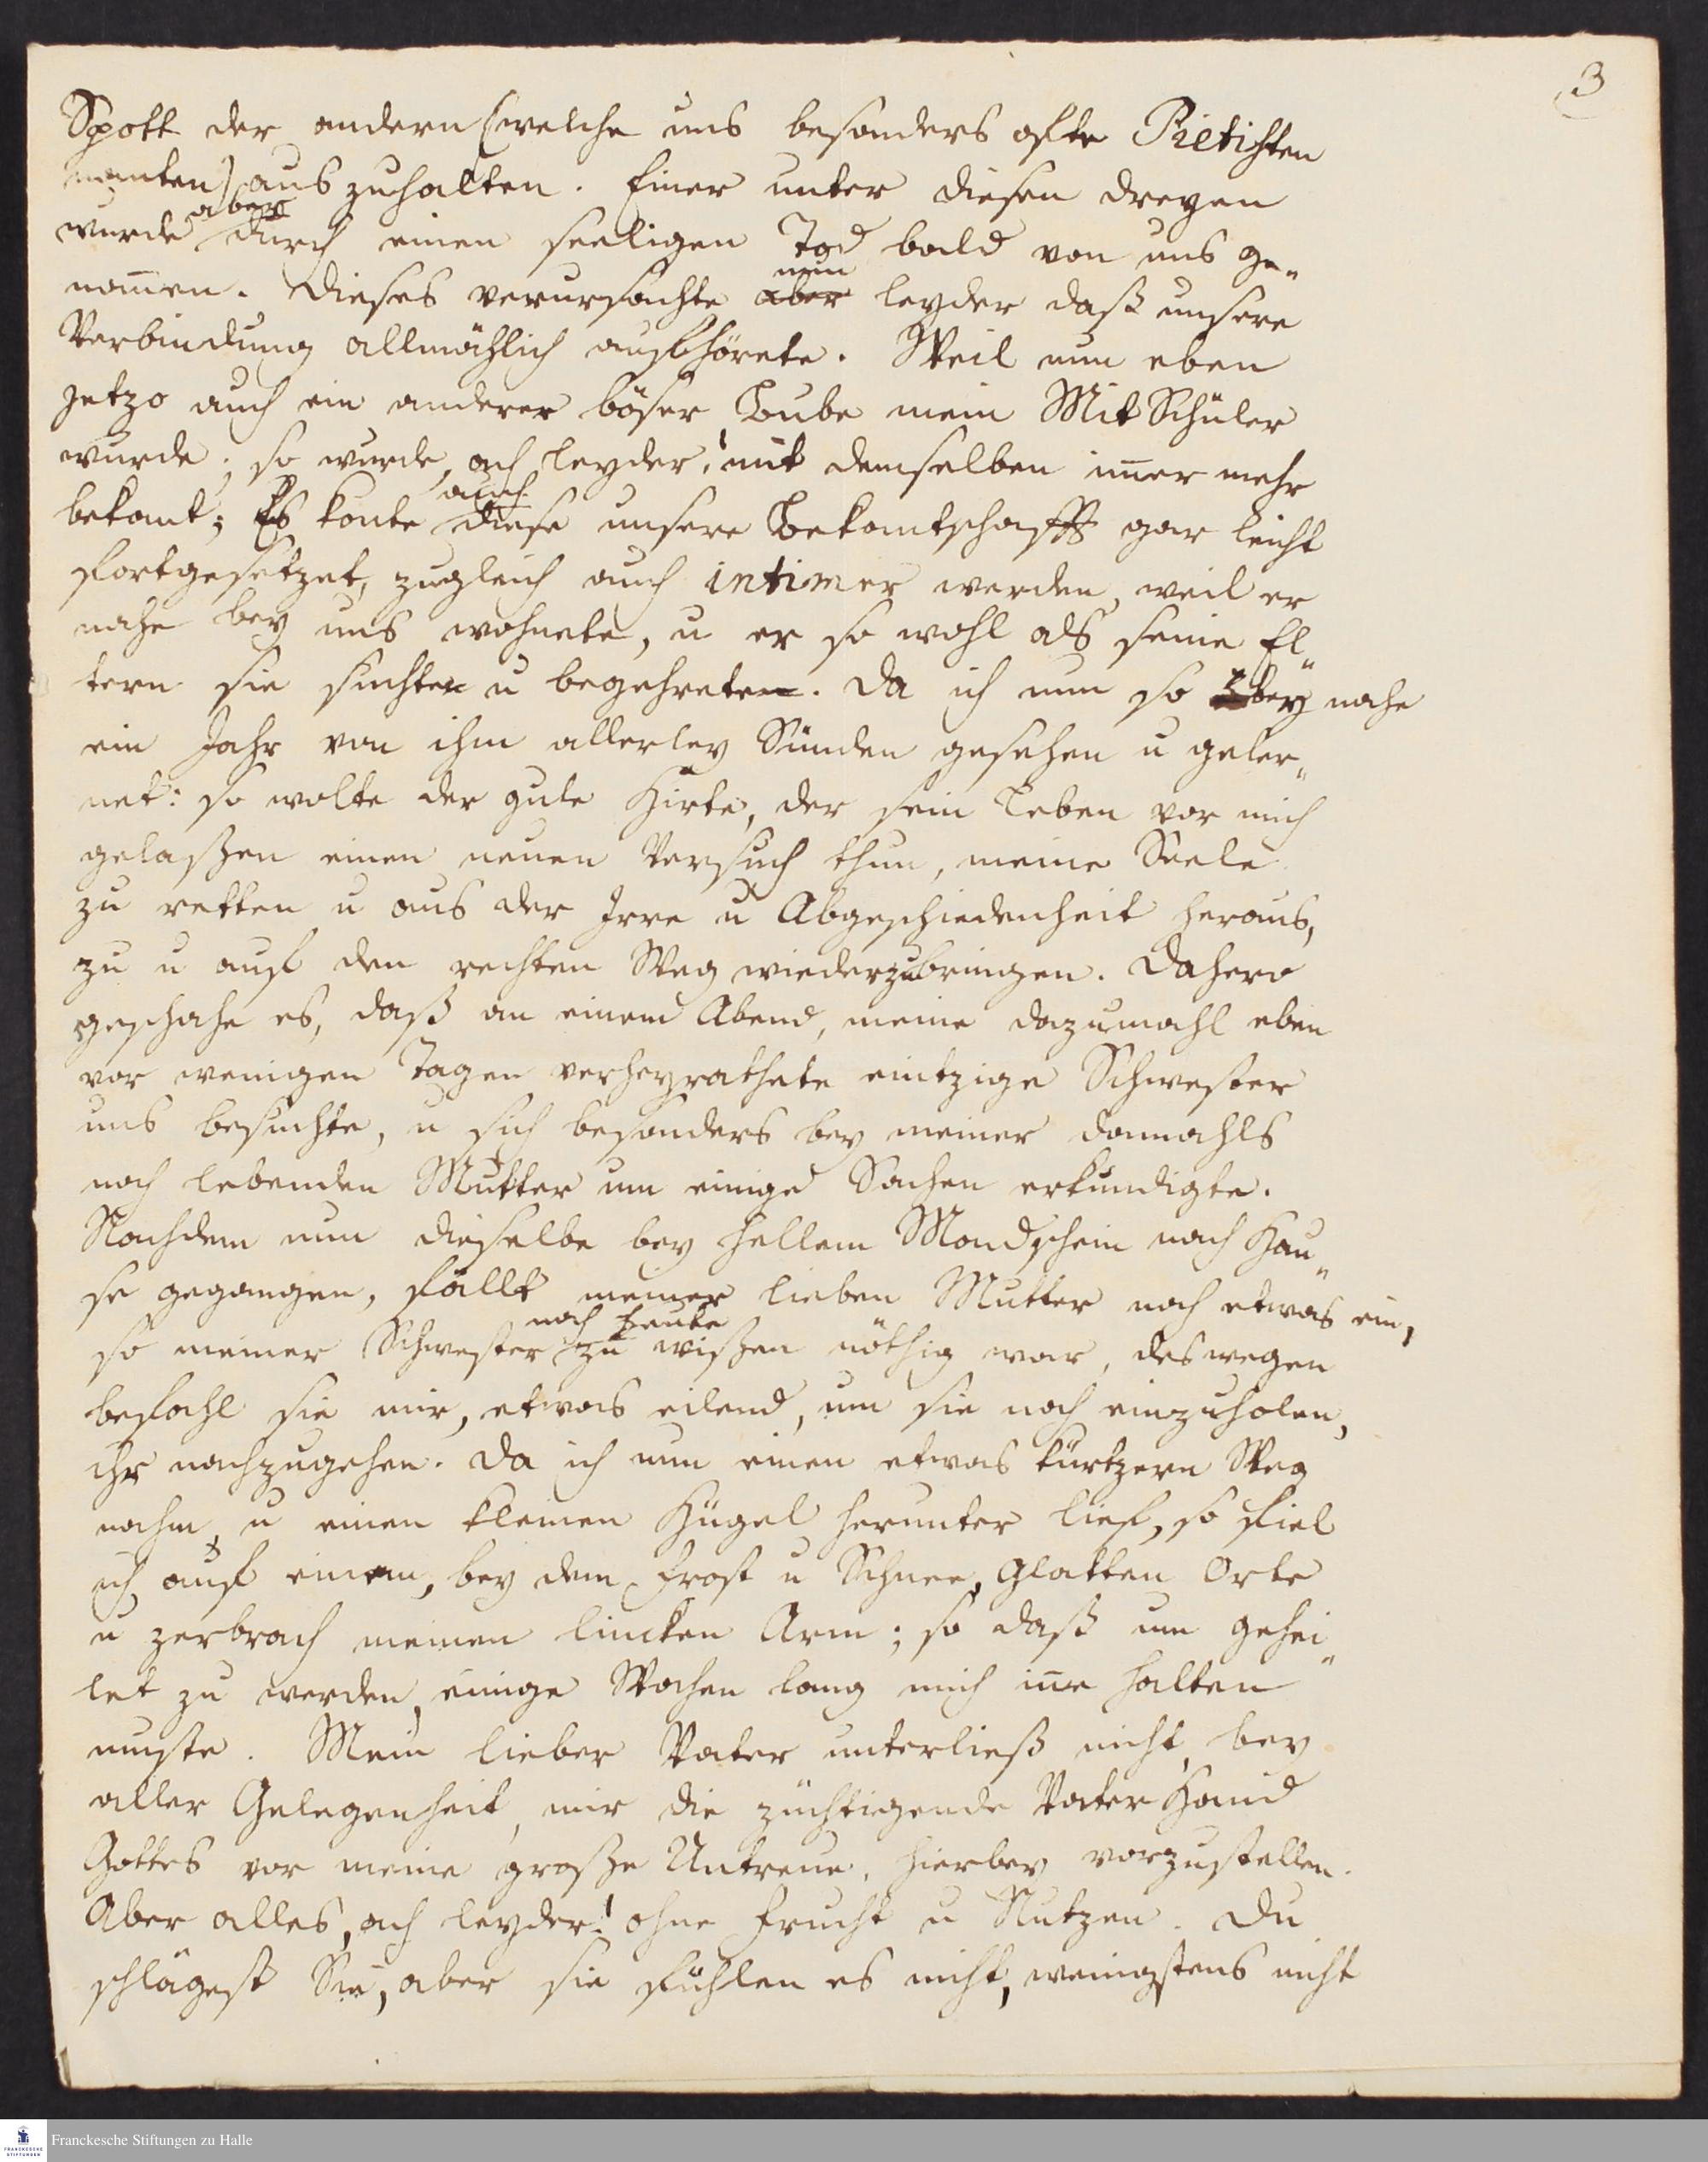 3
Spott der andern (welche uns besonders offte Pietisten
nanten) auszuhalten. Einer unter diesen dreyen
wurde aber durch einen seeligen Tod bald von uns ge-
nom̄en. Dieses verursachte aber nun leyder daß unsere
Verbindung allmächlich auffhörete. Weil nun eben
jetzo auch ein anderer böser Bube mein Mit Schüler
wurde; so wurde, ach leyder! mit demselben im̄er mehr
bekant; Es konte auch diese unsere Bekantschafft gar leicht
fortgesetzet, zugleich auch intimer werden, weil er
nahe bey uns wohnete, u er so wohl als seine El-
tern sie suchten u begehreten. Da ich nun so bey nahe
ein Jahr von ihm allerley Sünden gesehen u geler-
net: so wolte der gute Hirte, der sein Leben vor mich
gelaßen einen neuen Versuch thun, meine Seele
zu retten u aus der Irre u Abgeschiedenheit heraus,
zu u auf den rechten Weg wiederzubringen. Dahero
geschahe es, daß an einem Abend, meine dazumahl eben
vor wenigen Tagen verheyrathete eintzige Schwester
uns besuchte, u sich besonders bey meiner damahls
noch lebenden Mutter um einige Sachen erkundigte.
Nachdem nun dieselbe bey hellem Mondschein nach Hau-
se gegangen, fällt meiner lieben Mutter noch etwas ein,
so meiner Schwester noch heute zu wißen nöthig war, deswegen
befahl sie mir, etwas eilend, um sie noch einzuholen,
ihr nachzugehen. Da ich nun einen etwas kürtzern Weg
nahm, u einen kleinen Hügel herunter lief, so fiel
ich auf einem, bey dem Frost u Schnee, glatten Orte
u zerbrach meinen lincken Arm; so daß um gehei-
let zu werden, einige Wochen lang mich in̄e halten
muste. Mein lieber Vater unterließ nicht, bey
aller Gelegenheit, mir die züchtigende Vater Hand
Gottes vor meine große Untreue, hierbey vorzustellen.
Aber alles, ach leyder! ohne Frucht u Nutzen. Du
schlägest Sie, aber sie fühlen es nicht, wenigstens nicht
FRANCKESCHE STIFTUNGEN
Franckesche Stiftungen zu Halle